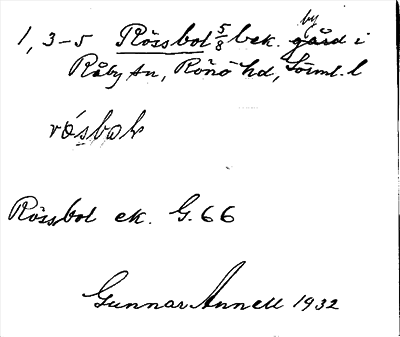 by
1, 3-5 Rössbol 5/8 bek. gård i
Råby sn, Rönö hd, Sörml. l
rösbok
Rössbol ek. G. 66
Gunnar Annell 1932